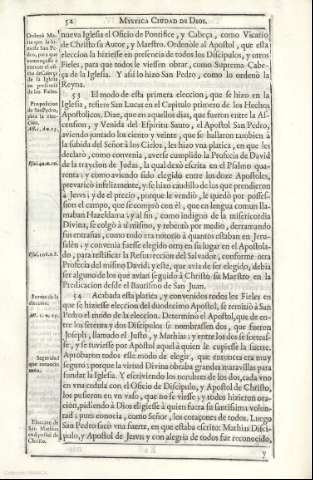 52 MYSTICA CIUDAD DE DIOS.
nueva Iglesia el Oficio de Pontifice, y Cabeça, como Vicario
de Christo su Autor, y Maestro. Ordenòle al Apostol, que esta
eleccion la hiziesse en presencia de todos los Discipulos, y otros
Fieles, para que todos le viessen obrar, como Suprema Cabe-
ça de la Iglesia. Y assi lo hizo San Pedro, como lo ordenò la
Reyna.
53 El modo de esta primera eleccion, que se hizo en la
Iglesia, refiere San Lucas en el Capitulo primero de los Hechos
Apostolicos. Dize, que en aquellos dias, que fueron entre la As-
cension, y Venida del Espiritu Santo, el Apostol San Pedro,
aviendo juntado los ciento y veinte, que se hallaron tambien à
la subida del Señor à los Cielos, les hizo vna platica, en que les
declarò, como convenia, averse cumplido la Profecia de David
de la traycion de Judas, la qual dexò escrita en el Psalmo qua-
renta: y como aviendo sido elegido entre los doze Apostoles,
prevaricò infelizmente, y se hizo caudillo de los que prendieron
à Jesvs; y de el precio, porque le vendiò, le quedò por posses-
sion el campo, que se comprò con èl, que en lengua comun lla-
maban Hazeldama; y al fin, como indigno de la misericordia
Divina, se colgò à sì mismo, y rebentò por medio, derramando
sus entrañas, como todo era notorio à quantos estaban en Jeru-
salèn; y convenia fuesse elegido otro en su lugar en el Apostola-
do, para testificar la Resurreccion del Salvador, conforme otra
Profecia del mismo David; y este, que avia de ser elegido, debia
ser alguno de los que avian seguido à Christo su Maestro en la
Predicacion desde el Bautismo de San Juan.
54 Acabada esta platica, y convenidos todos los Fieles en
que se hiziesse eleccion del duodecimo Apostol, se remitiò à San
Pedro el modo de la eleccion. Determinò el Apostol, que de en-
tre los setenta y dos Discipulos se nombrassen dos, que fueron
Joseph, llamado el Justo, y Mathias: y entre los dos se sorteas-
se, y se tuviesse por Apostol aquel à quien le cupiesse la suerte.
Aprobaron todos este modo de elegir, que entonces era muy
seguro; porque la virtud Divina obraba grandes maravillas para
fundar la Iglesia. Y escriviendo los nombres de los dos, cada vno
en vna cedula con el Oficio de Discipulo, y Apostol de Christo,
los pusieron en vn vaso, que no se viesse; y todos hizieron ora-
cion, pidiendo à Dios eligiesse à quien fuera su santissima volun-
tad; pues conocia, como Señor, los coraçones de todos. Luego
San Pedro sacò vna suerte, en que estaba escrito: Mathias Disci-
pulo, y Apostol de Jesvs; y con alegria de todos fue reconocido,
y
Proposicion
de San Pedro,
Seguridad